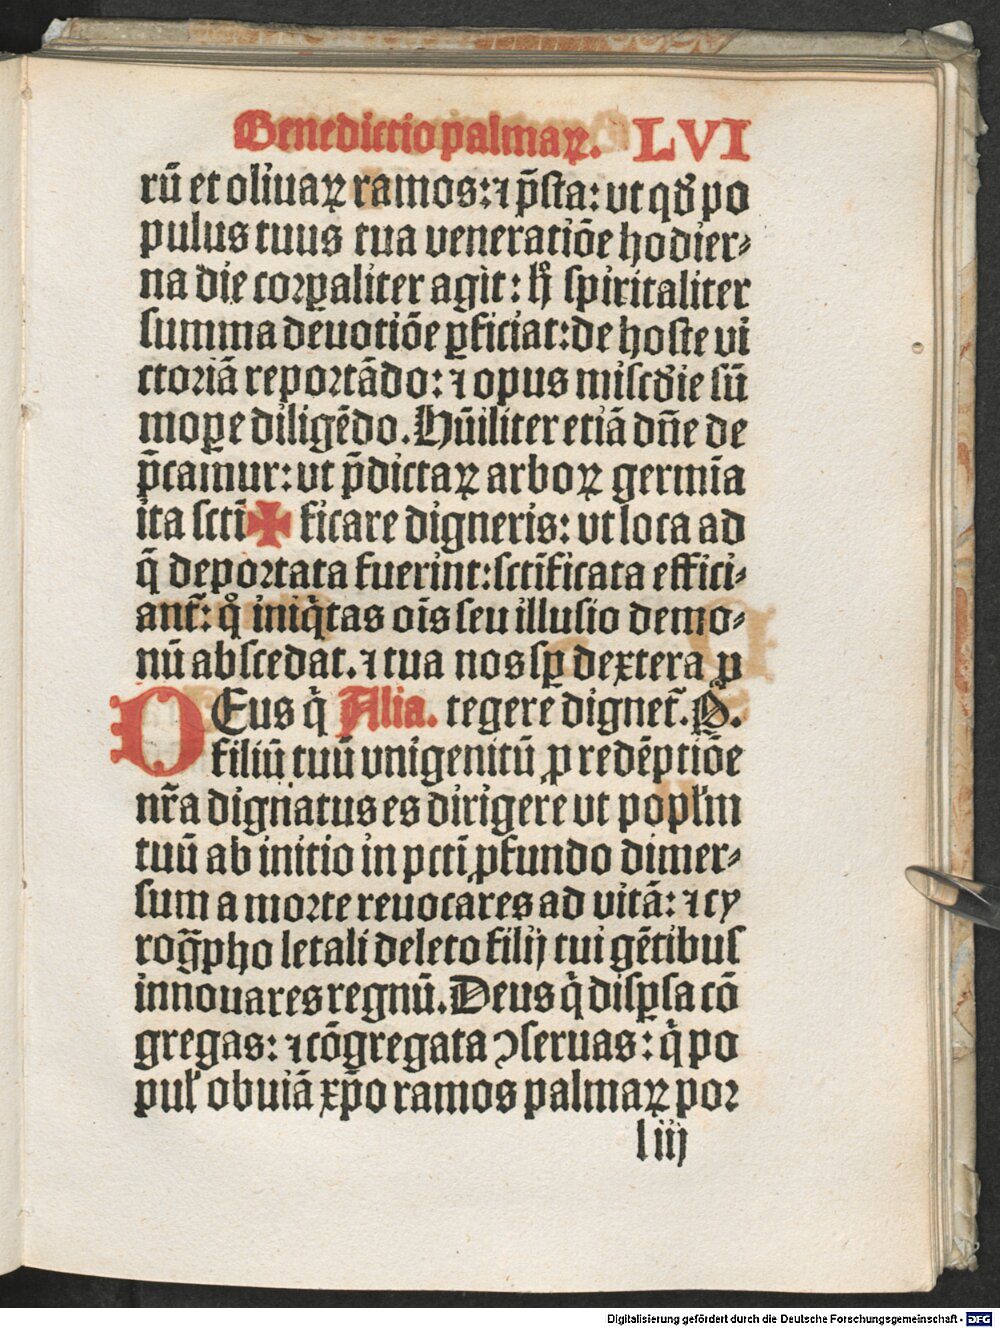 Benedictio palmaꝝ. LVI
rũ et oliuaꝝ ramos: ⁊ p̃sta: ut qð po
pulus tuus tua veneratiõe hodier⸗
na die corꝑaliter agit: h̊ spiritaliter
summa deuotiõe ꝑficiat: de hoste vi
ctoriã reportãdo: ⁊ opus misc̃die sũ
moꝑe diligẽdo. Hũiliter etiã dñe de
p̃camur: ut p̃dictaꝝ arboꝝ germĩa
ita sctĩ ✠ ficare digneris: ut loca ad
q̃ deportata fuerint: sctĩficata effici⸗
ant᷑: q̊ iniq̃tas oĩs seu illusio demo⸗
nũ abscedat. ⁊ tua nos sꝑ dextera ꝑ
DEus q̇ Alia. tegere dignet᷑. Q̃.
filiũ tuũ vnigenitũ ꝓ redẽptiõe
nr̃a dignatus es dirigere ut popl̃m
tuũ ab initio in pctĩ ꝓfundo dimer⸗
sum a morte reuocares ad vitã: ⁊ cy
rog̃pho letali deleto filij tui gẽtibus
innouares regnũ. Deus q̇ disꝑsa cõ
gregas: ⁊ cõgregata ꝯseruas: q̇ po
pul᷑ obuiã xp̃o ramos palmaꝝ por
l iij
Digitalisierung gefördert durch die Deutsche Forschungsgemeinschaft - DFG